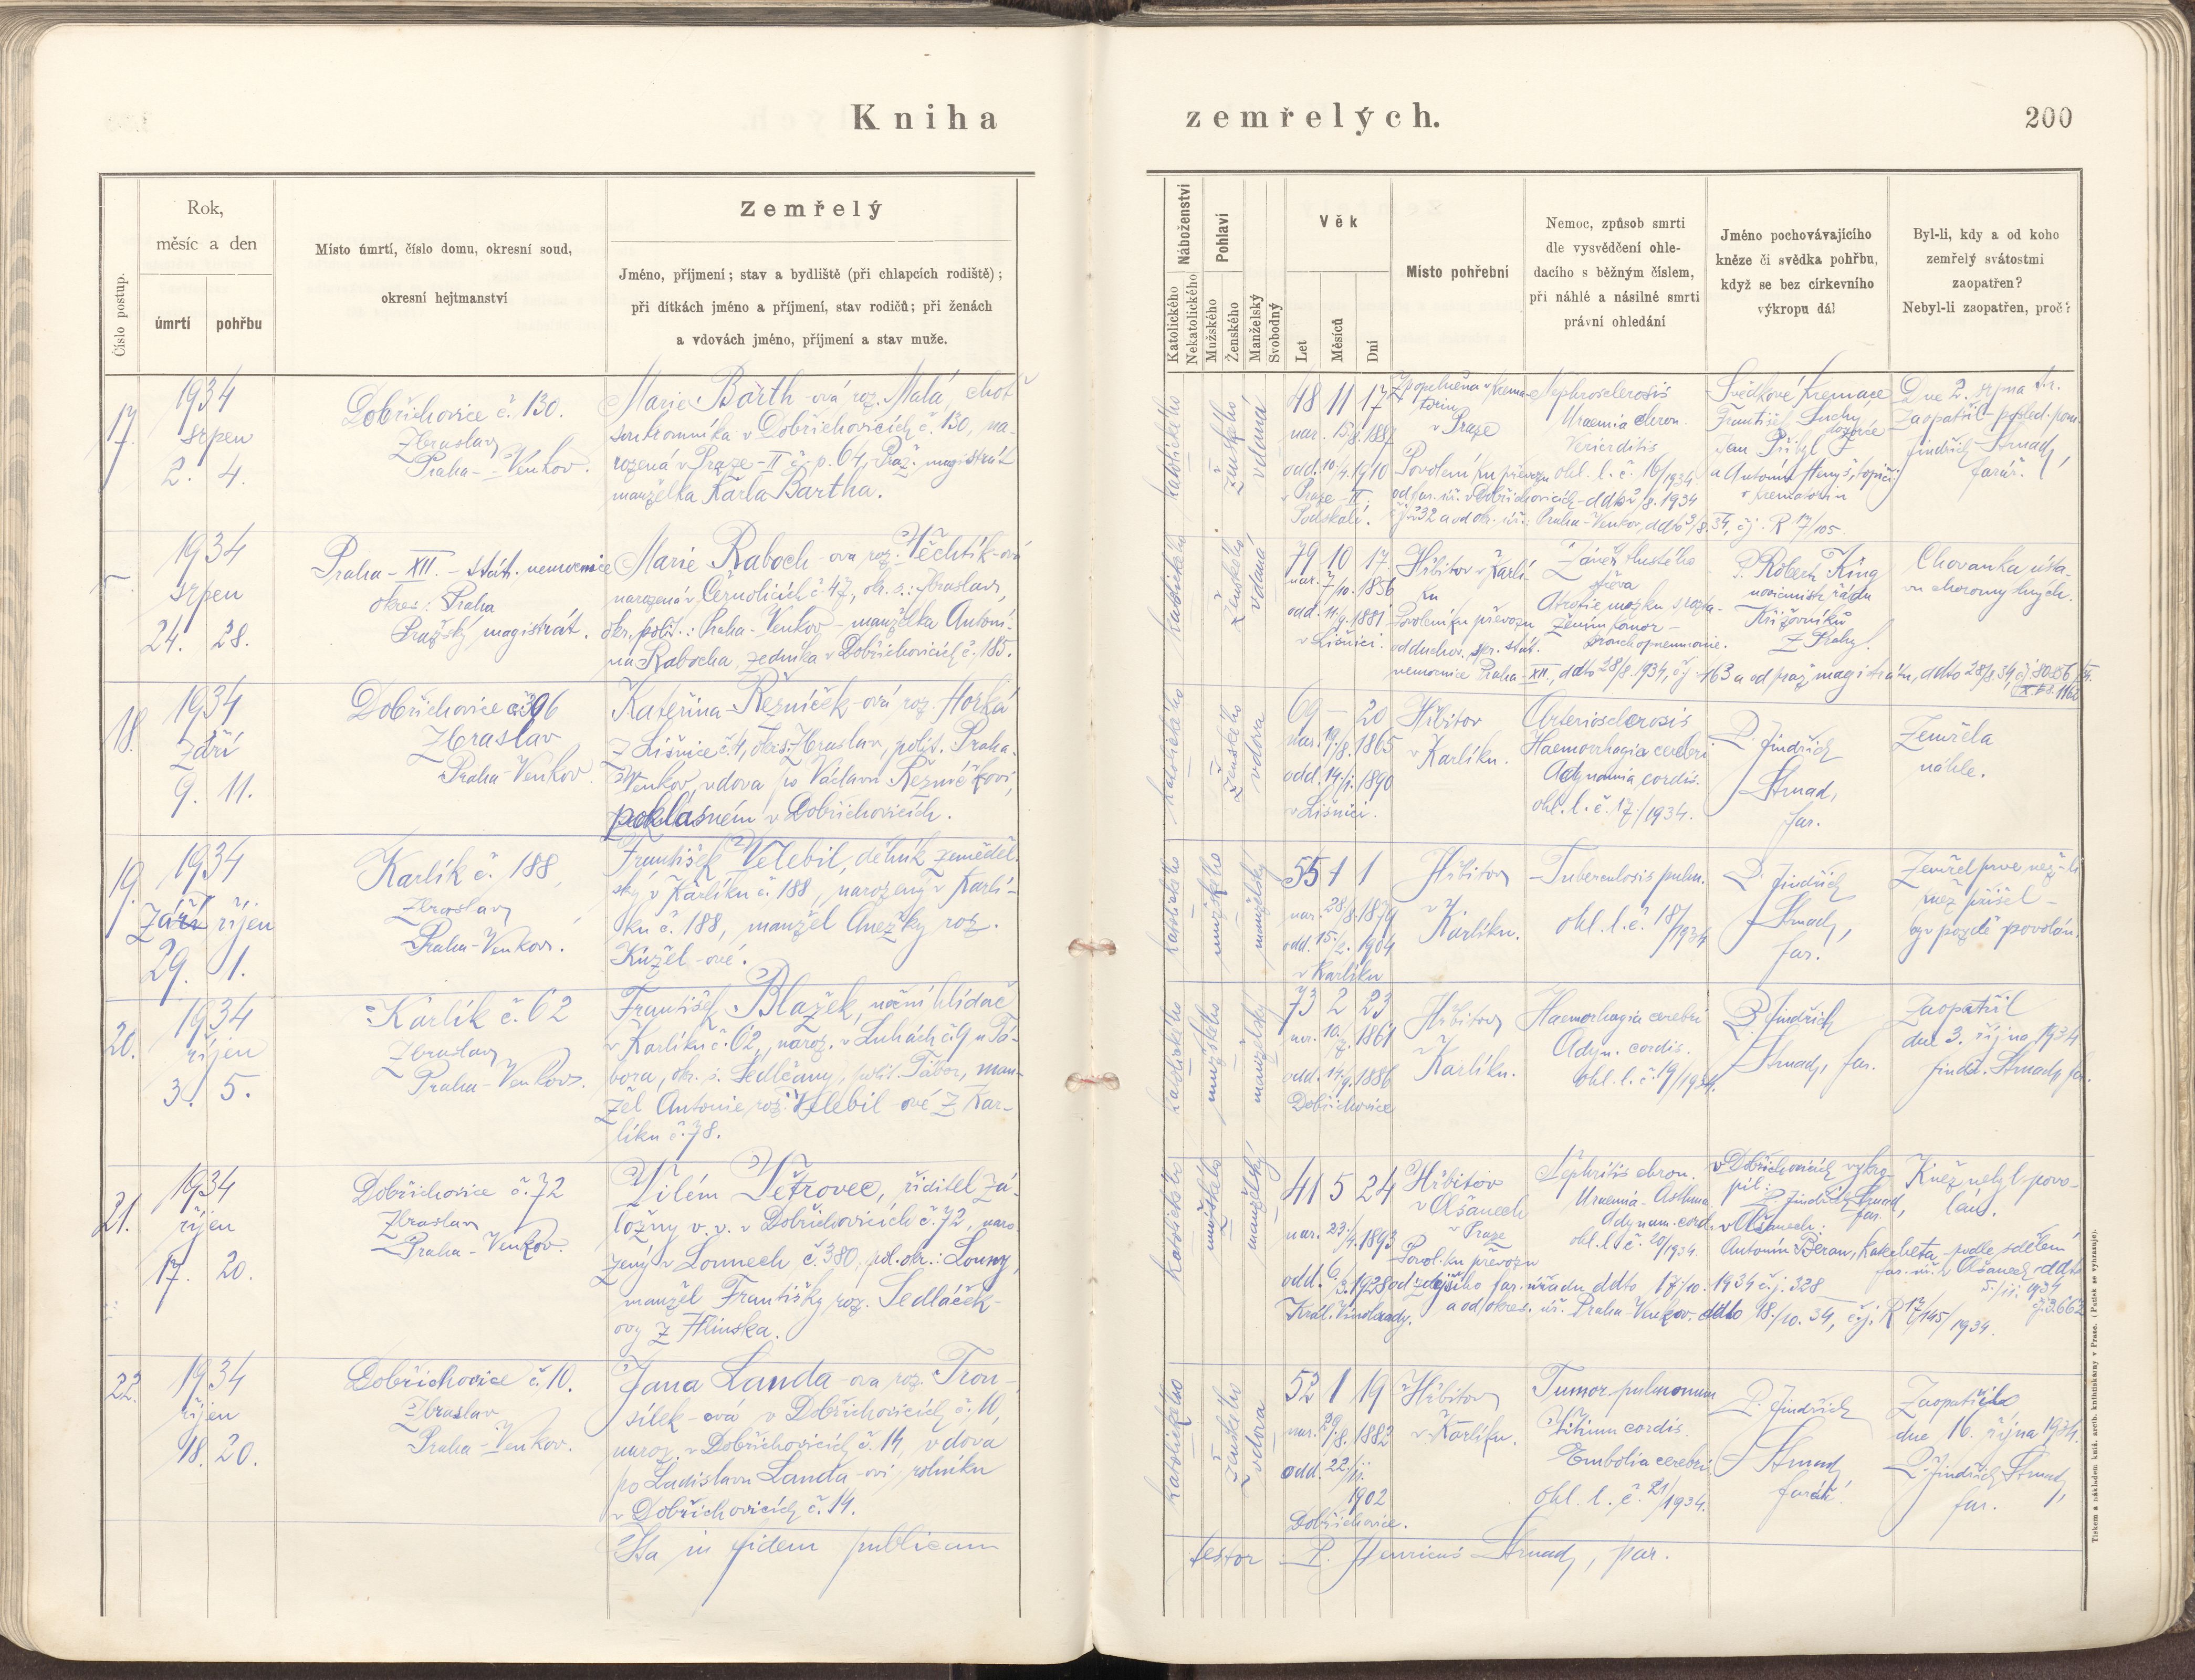 Kniha zemřelých.
200
Číslo postup.
Rok,
měsíc a den
úmrtí
pohřbu
Místo úmrtí, číslo domu, okresní soud,
okresní hejtmanství
Zemřelý
Jméno, příjmení; stav a bydliště (při chlapcích rodiště);
při dítkách jméno a příjmení, stav rodičů; při ženách
a vdovách jméno, příjmení a stav muže.
Náboženství
Katolického
Nekatolického
Pohlaví
Mužského
Ženského
Manželský
Svobodný
Věk
Let
Měsíců
Dní
Místo pohřební
Nemoc, způsob smrti
dle vysvědčení ohle-
dacího s běžným číslem,
při náhlé a násilné smrti
právní ohledání
Jméno pochovávajícího
kněze či svědka pohřbu,
když se bez církevního
výkropu dál
Byl-li, kdy a od koho
zemřelý svátostmi
zaopatřen?
Nebyl-li zaopatřen, proč?
17.
1934
srpen
2. 4.
Dobřichovice č. 130.
Zbraslav
Praha-Venkov.
Marie Barth-ová roz. Malá, choť
soukromníka v Dobřichovicích č. 130, na-
rozená v Praze-II č. p. 64, Praž. magistrát
manželka Karla Bartha.
katolického
ženského
vdaná
48 11 17
nar. 15/8. 1887
odd. 10/4. 1910
v Praze-II.
Podskalí.
Zpopelněna v krema-
toriu
v Praze
Povolení ku převozu
od far. úř. v Dobřichovicích ddto 3/8. 1934
Nephrosclerosis
Uraemia chron.
ohl. l. č. 16/1934
Svědkové kremace
František Suchý
dozorce
Jan Přibyl
a Antonín topiči
v krematoriu
Dne 2. srpna t.r.
zaopatřil posled. pom.
Jindřich Strnad,
farář.
1934
srpen
24. 28.
Praha-XII.-stát. nemocnice
okres: Praha
Pražský magistrát.
Marie Raboch-ova roz. Těchtík-ová
narozená v Černolicích č. 47, okr. s.: Zbraslav,
okr. polit.: Praha-Venkov-manželka Antoní-
na Rabocha, zedníka v Dobřichovicích č. 185.
katolického
ženského
vdaná
79 10 17.
nar. 7/10. 1856
odd. 11/9. 1881
v Líšnici.
Hřbitov v Karlí-
ku
Povolení ku převozu
od duchov. spr. stát.
nemocnice Praha-XII, ddto 28/8. 1934, čj. 163 a od praž. magistrátu, ddto 28/8. 34, čj. 80256
Zánět tlustého
střeva
Atrofie mozku s rozta-
žením komor-
bronchopneumonie.
P. Robert King
novicmistr řádu
Křižovníků
z Prahy.
Chovanka ústa-
vu choromyslných.
18.
1934
září
9. 11.
Dobřichovice č. 396
Zbraslav
Praha Venkov
Kateřina Řezníček-ová roz. Horká
z Líšnice č. 4, okres: Zbraslav, polit. Praha-
Venkov, vdova po Václavu Řezníčkovi,
poklasném v Dobřichovicích.
katolického
ženského
vdova
69 – 20
nar. 19/8. 1865
odd. 14/1. 1890
v Líšnici.
Hřbitov
v Karlíku.
Arteriosclerosis
Haemorrhagia cerebri
Adynamia cordis.
ohl. l. č. 17/1934.
P. Jindřich
Strnad,
far.
Zemřela
náhle.
19.
1934
září říjen
29. 1.
Karlík č. 188,
Zbraslav
Praha-Venkov.
František Velebil, dělník zeměděl.
ský v Karlíku č. 188, narozený v Karlí-
ku č. 188, manžel Anežky roz.
Kužel-ové.
katolického
mužského
manželský
55 1 1
nar. 28/8. 1879
odd. 15/2. 1904
v Karlíku
Hřbitov
v
Karlíku.
Tuberculosis pulm.
ohl. l. č. 18/1934
P. Jindřich
Strnad,
far.
Zemřel prve než-li
kněz přišel-
byv pozdě povolán.
20.
1934
říjen
3. 5.
Karlík č. 62
Zbraslav
Praha-Venkov.
František Blažek, noční hlídač
v Karlíku č. 62, naroz. v Luhách č. 9 u Tá-
bora, okr. s. Sedlčany, polit. Tábor, man-
žel Antonie roz. Velebil-ové z Kar-
líku č. 78.
katolického
mužského
manželský
73 2 23
nar. 10/7. 1861
odd. 14/9. 1886
Dobřichovice
Hřbitov
Karlíku.
Haemorhagia cerebri
Adyn. cordis.
Ohl. l. č. 19/1934.
P. Jindřich
Strnad, far.
Zaopatřil
dne 3. října 1934
Jindř. Strnad, far.
21.
1934
říjen
17. 20.
Dobřichovice č. 72
Zbraslav
Praha-Venkov.
Vilém Větrovec, ředitel zá-
ložny v. v. v Dobřichovicích č. 72, naro-
zený v Lounech č. 380, pol. okr.: Louny,
manžel Františky roz. Sedláček-
ovy z Hlinska.
katolického
mužského
manželský
41 5 24
nar. 23/4. 1893
odd. 6/2. 1928
Král. Vinohrady.
Hřbitov
v Olšanech
v Praze
Povol. ku převozu
od zdejšího far. úřadu ddto 17/10. 1934 č. j. 328
a od okres. úř. Praha-Venkov. ddto 18./10. 34, č. j. R 17/145/1934.
Nephritis chron.
Uraemia-Asthma
Adynam. cord.
ohl. l. č. 20/1934.
v Dobřichovicích vykro-
pil:
P. Jindřich Strnad,
far.
v Olšanech:
Antonín Beran, katecheta-podle sdělení
far. úř. v Olšanech ddto
5./11. 1934
čj. 3.662
Kněz nebyl povo-
lán.
22.
1934
říjen
18. 20.
Dobřichovice č. 10.
Zbraslav
Praha-Venkov.
Jana Landa-ova roz. Trou-
sílek-ová v Dobřichovicích č. 10,
naroz. v Dobřichovicích č. 14, vdova
po Ladislavu Landa-ovi, rolníku
v Dobřichovicích č. 14.
katolického
ženského
vdova
52 1 19
nar. 29/8. 1882
odd. 22./11.
1902
Dobřichovice.
Hřbitov
v Karlíku.
Tumor pulmonum
Vitium cordis.
Embolia cerebri
Ohl. l. č. 21/1934.
P. Jindřich
Strnad
farář.
Zaopatřila
dne 16. října 1934.
P. Jindřich Strnad,
far.
Ita in fidem publicam
testor P. Henricus Strnad, par.